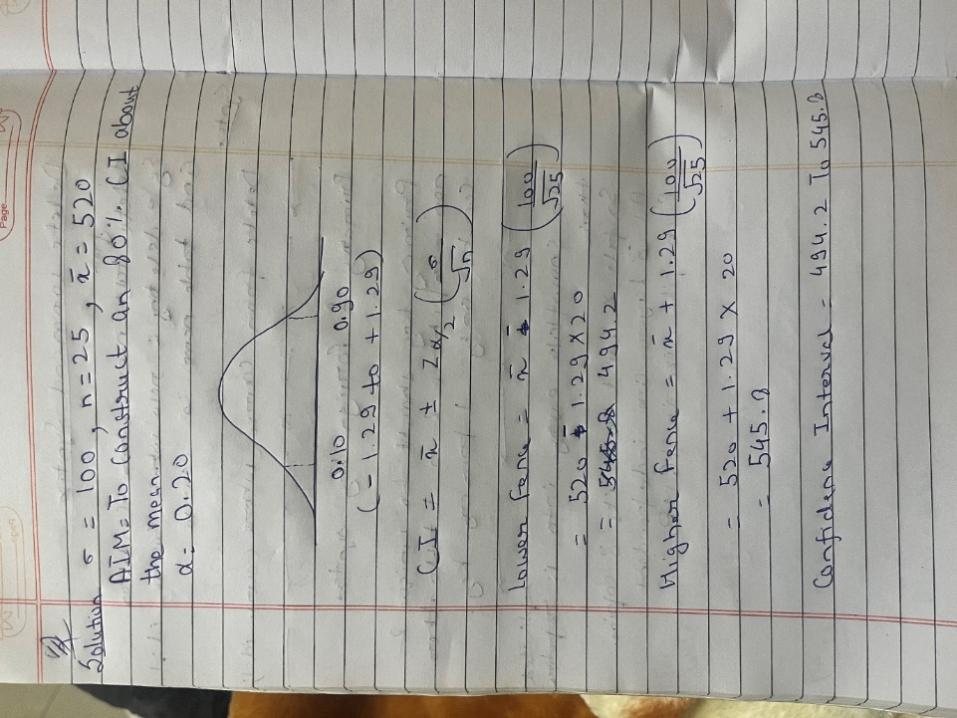 Page
Solution σ = 100 , n = 25 , x̄ = 520
AIM = To Construct an 80% CI about
the mean.
α = 0.20
0.10 0.90
(-1.29 to +1.29)
CI = x̄ ± Zα/2 (σ/√n)
Lower Fence = x̄ - 1.29 (100/√25)
= 520 - 1.29 × 20
= 494.2
Higher Fence = x̄ + 1.29 (100/√25)
= 520 + 1.29 × 20
= 545.8
Confidence Interval = 494.2 To 545.8